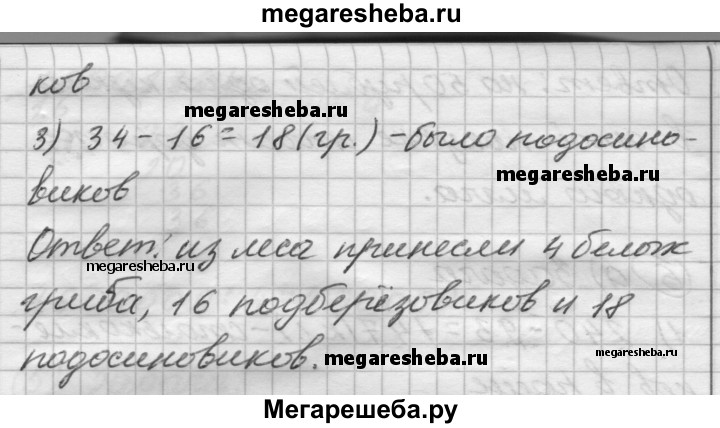 megaresheba.ru
ков
megaresheba.ru
3) 34 - 16 = 18 (гр.) - было подосино-
megaresheba.ru
виков
Ответ: из леса принесли 4 белых
megaresheba.ru
гриба, 16 подберёзовиков и 18
megaresheba.ru
подосиновиков.
megaresheba.ru
Мегарешеба.ру